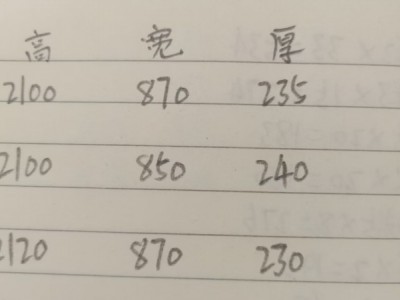 高 宽 厚
2100 870 235
2100 850 240
2120 870 230